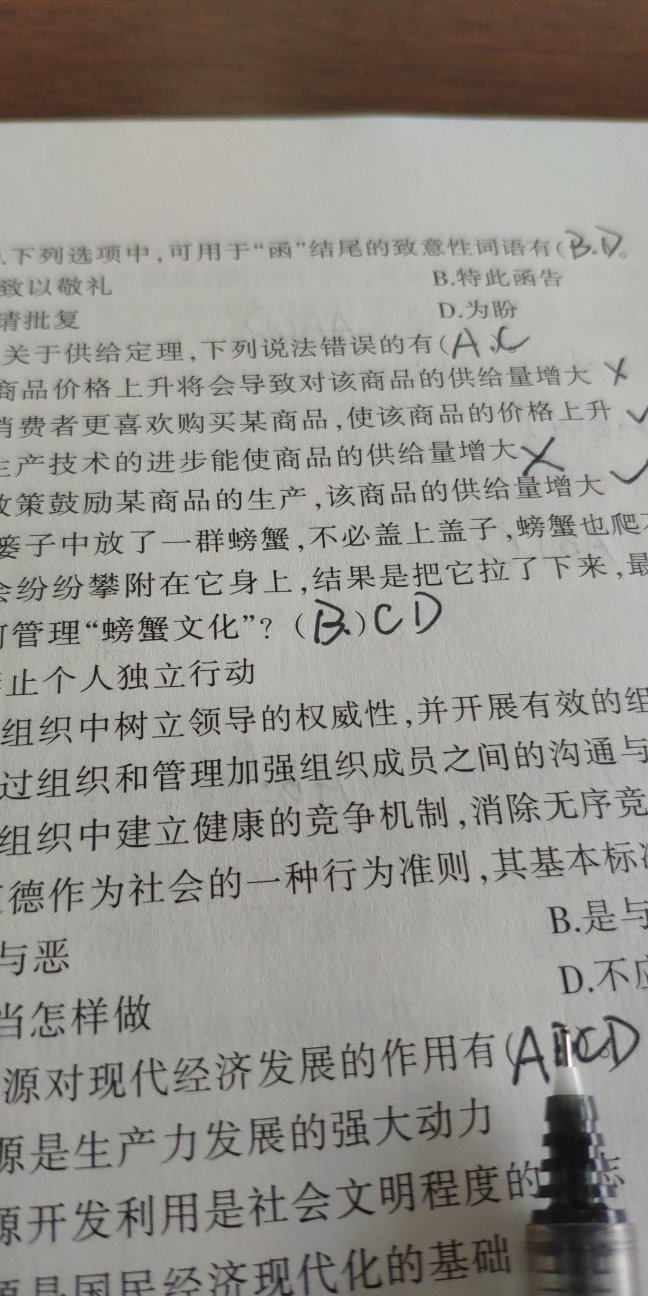 .下列选项中,可用于“函”结尾的致意性词语有(B.D。
致以敬礼 B.特此函告
请批复 D.为盼
关于供给定理,下列说法错误的有(A、C
商品价格上升将会导致对该商品的供给量增大 ×
消费者更喜欢购买某商品,使该商品的价格上升 ✓
生产技术的进步能使商品的供给量增大 ×
政策鼓励某商品的生产,该商品的供给量增大 ✓
篓子中放了一群螃蟹,不必盖上盖子,螃蟹也爬
会纷纷攀附在它身上,结果是把它拉了下来,最
管理“螃蟹文化”?(B.)CD
止个人独立行动
组织中树立领导的权威性,并开展有效的组
过组织和管理加强组织成员之间的沟通与
组织中建立健康的竞争机制,消除无序竞
德作为社会的一种行为准则,其基本标
B.是与
与恶
D.不应
当怎样做
源对现代经济发展的作用有(ABCD
源是生产力发展的强大动力
源开发利用是社会文明程度的
源是国民经济现代化的基础